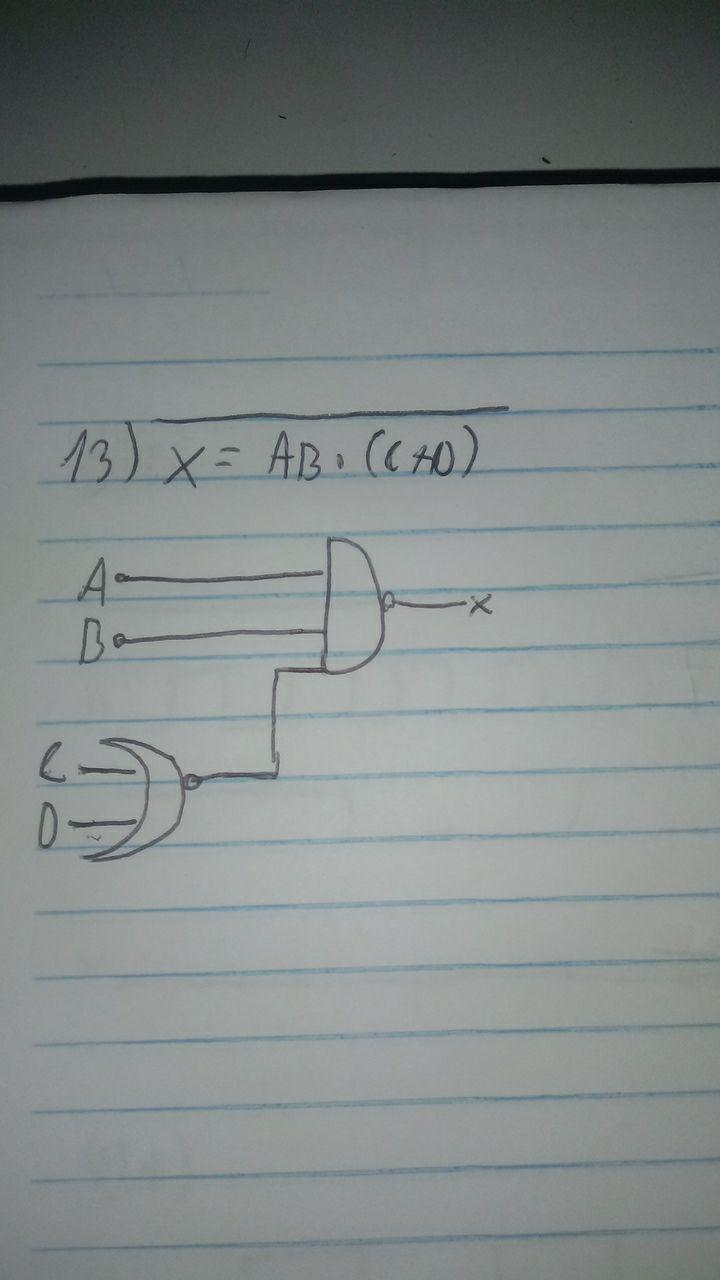 13) X = AB . (C+D)
A
B
x
C
D